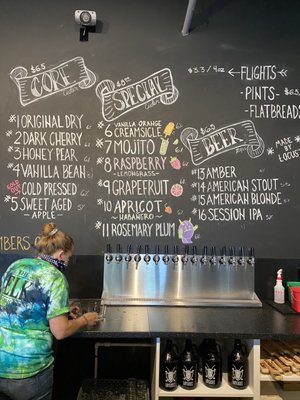 $6.5
CORE
Ciders
1 ORIGINAL DRY
2 DARK CHERRY
3 HONEY PEAR
4 VANILLA BEAN
COLD PRESSED
5 SWEET AGED
- APPLE -
SPECIAL
Ciders
VANILLA ORANGE
6 CREAMSICLE
7 MOJITO
8 RASPBERRY
- LEMONGRASS -
9 GRAPEFRUIT
10 APRICOT
- HABANERO -
11 ROSEMARY PLUM
$6.5
BEER
13 AMBER
14 AMERICAN STOUT
15 AMERICAN BLONDE
16 SESSION IPA
$3.3 / 4oz
- FLIGHTS -
- PINTS -
$6.5
- FLATBREADS
MADE
LOCA
MBERS